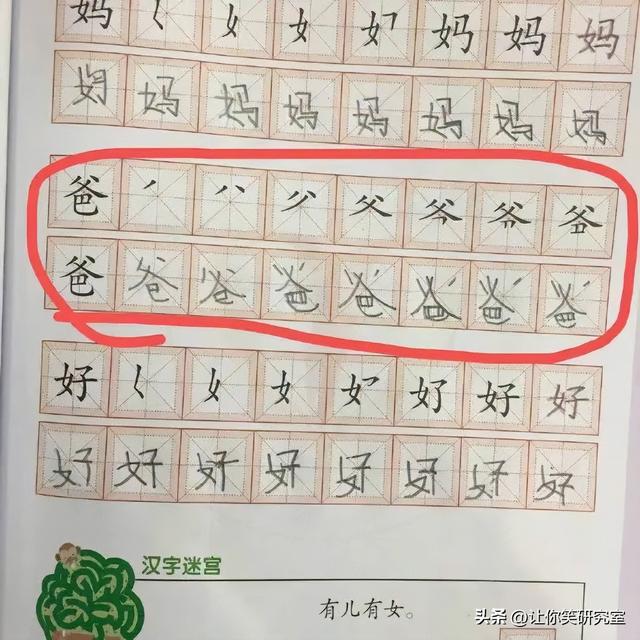 妈 𡿨 女 女 妈 妈 妈
妈 妈 妈 妈 妈 妈 妈 妈
爸 丿 八 父 爷 爷
爸 爸 爸 爸 爸 爸 爸 爸
好 女 女 好 好 好
好 好 好 好 好 好 好 好
汉字迷宫
有儿有女。
头条 @让你笑研究室